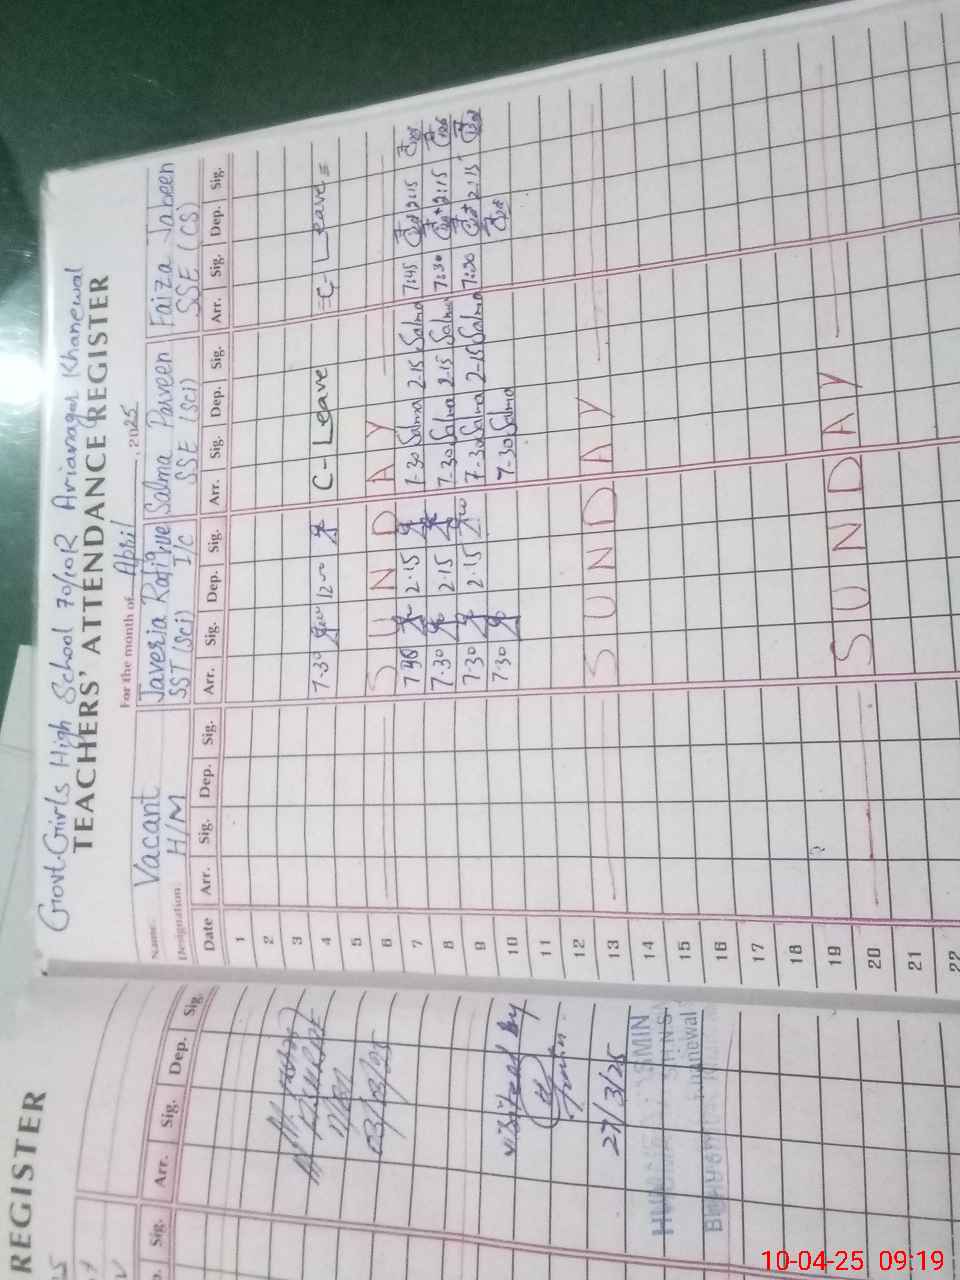 Govt. Girls High School 70/10R Arianagar Khanewal
TEACHERS' ATTENDANCE REGISTER
For the month of April, 2025
Name: Vacant Javeria Rafique Salma Parveen Faiza Jabeen
Designation H/M SST (Sci) I/C SSE (Sci) SSE (CS)
Date Arr. Sig. Dep. Sig. Arr. Sig. Dep. Sig. Arr. Sig. Dep. Sig. Arr. Sig. Dep. Sig.
1
2
3
4 7-30 12-00 C-Leave =C-Leave=
5
6 SUNDAY
7 7:45 2.15 7-30 Salma 2-15 Salma 7:45 2:15
8 7.30 2.15 7-30 Salma 2-15 Salma 7:30 2:15
9 7.30 2.15 7-30 Salma 2-15 Salma 7:30 2:15
10 7.30 7-30 Salma
11
12
13 SUNDAY
14
15
16
17
18
19
20 SUNDAY
21
22
REGISTER
Sig. Arr. Sig. Dep. Sig.
03/03/25
visited by
27/3/25
Khanewal
10-04-25 09:19